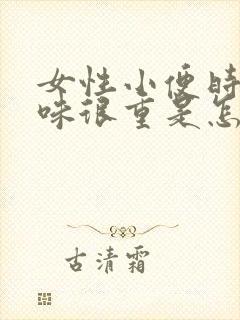 女性小便时
味很重是怎
古清霜